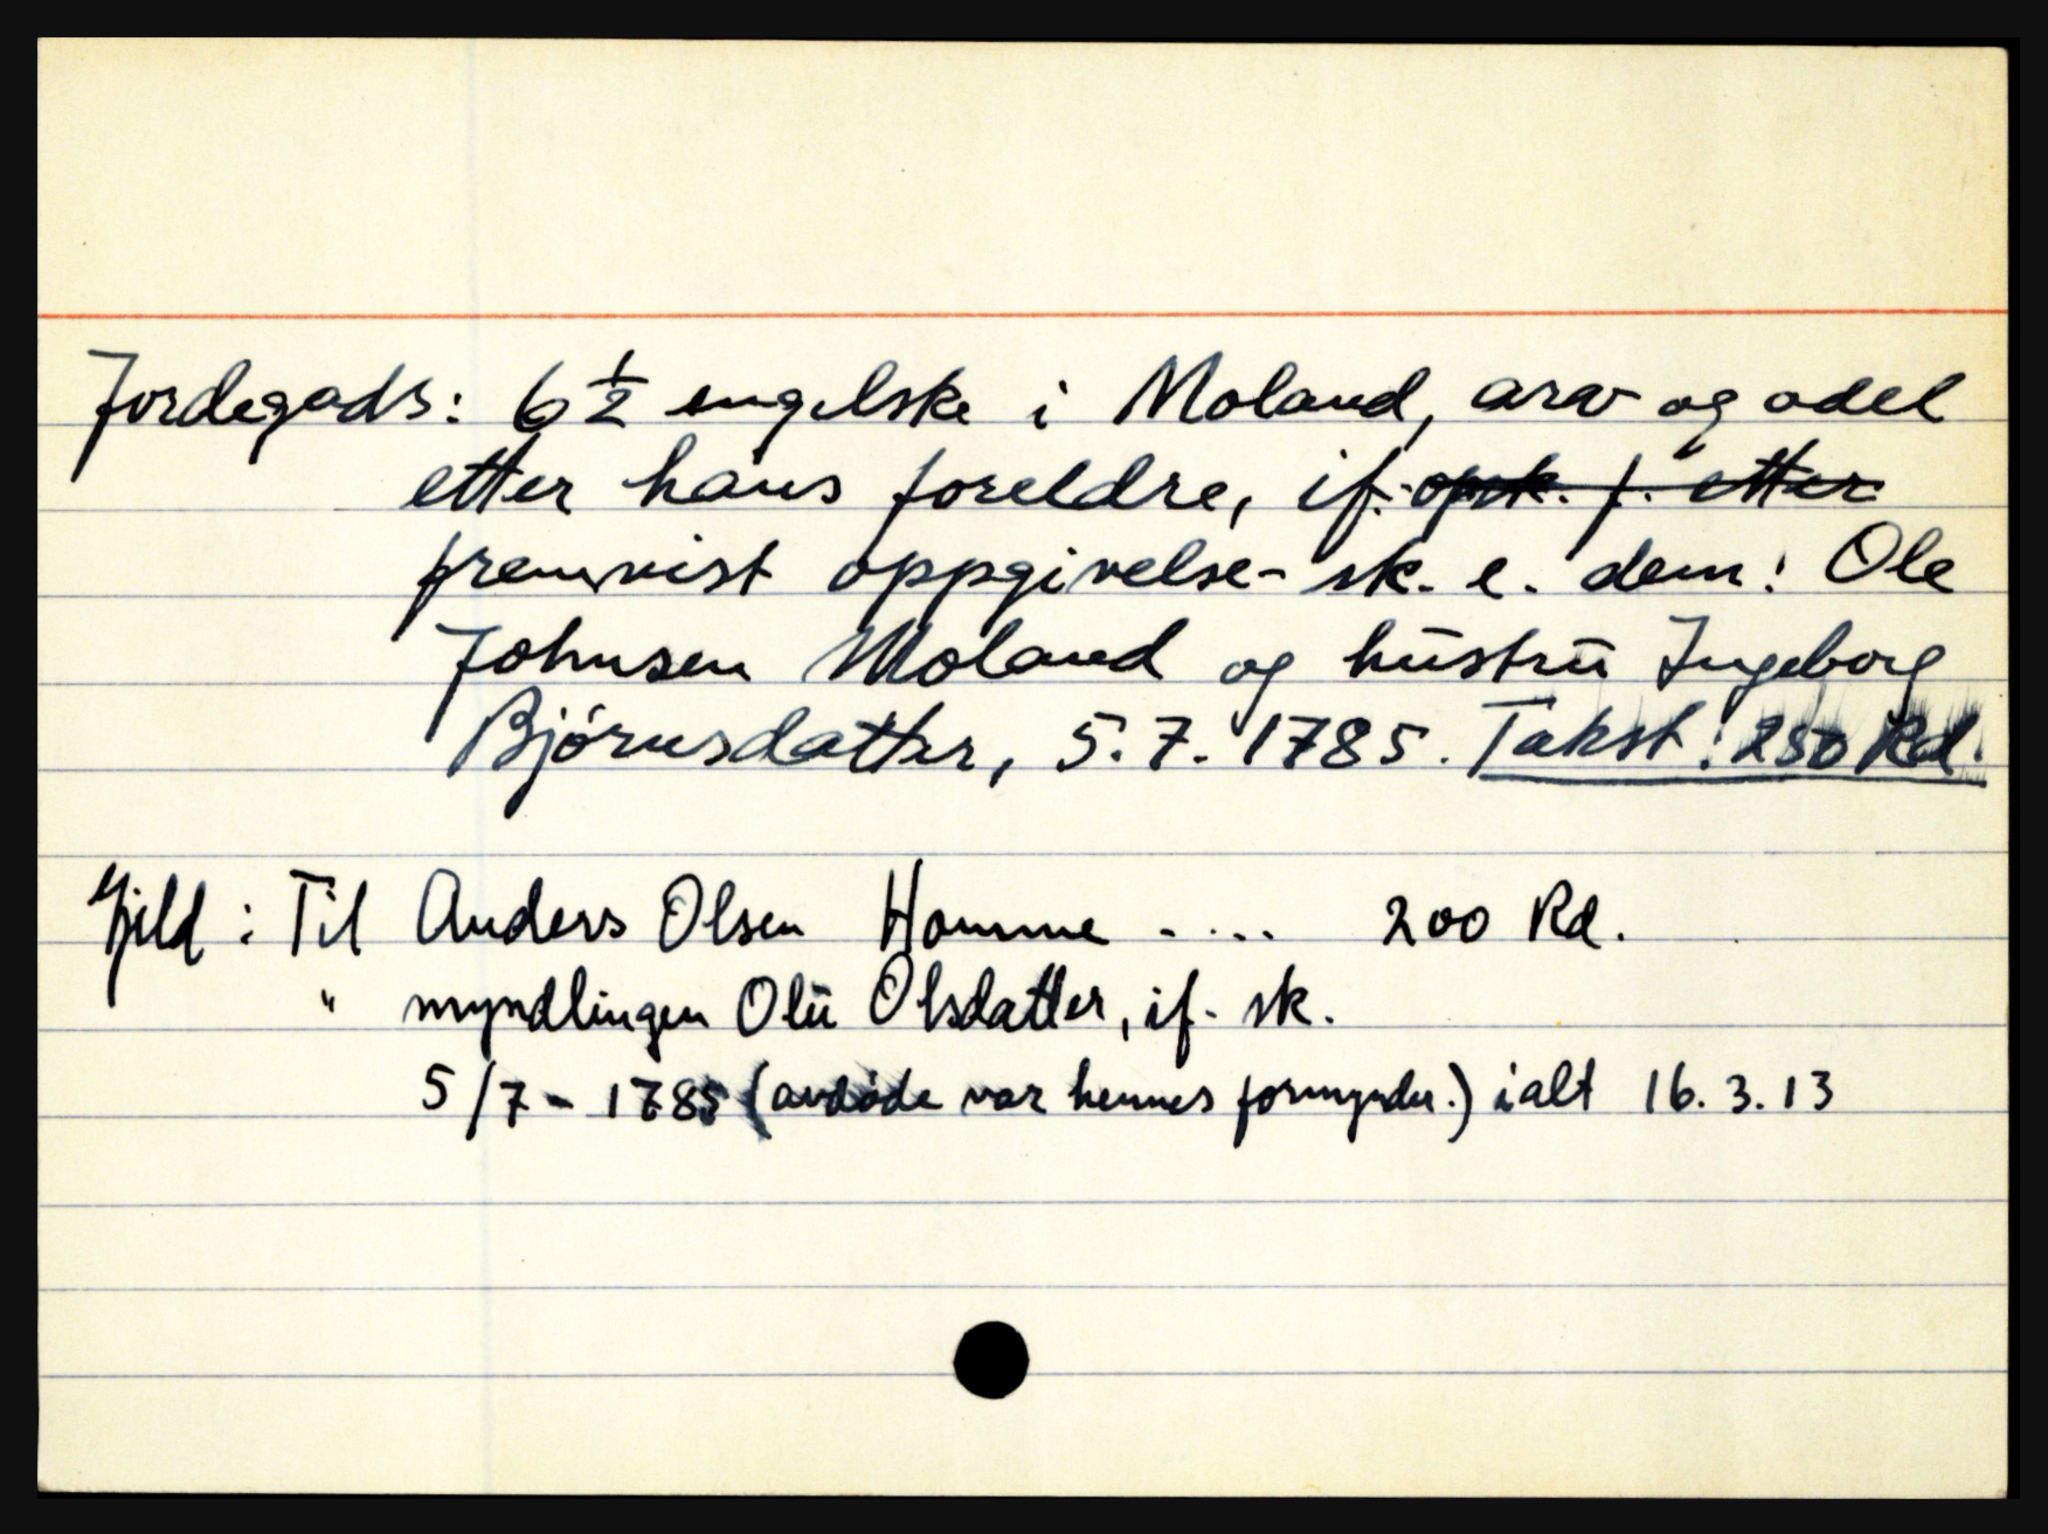 Jordegods: 6 1/2 engelske i Moland, arv og odel
etter hans foreldre, if. opsk. f. etter
fremvist oppgivelse-sk. e. dem: Ole
Johnsen Moland og hustru Ingeborg
Bjørnsdatter, 5.7.1785. Takst: 250 Rd.
Gjeld: Til Anders Olsen Homme - . . . 200 Rd.
" myndlingen Olu Olsdatter, if. sk.
5/7 - 1785 (avdøde var hennes formynder.) i alt 16.3.13